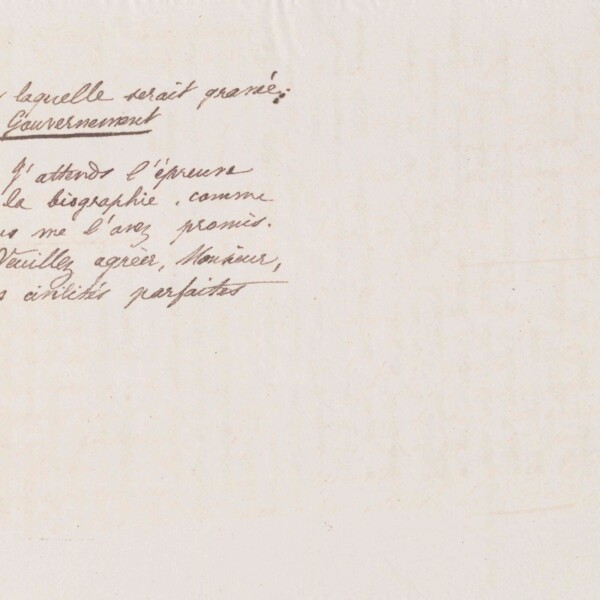 laquelle serait gravé:
Gouvernement
J'attends l'épreuve
la biographie, comme
me l'avez promis.
Veuillez agréer, Monsieur,
civilités parfaites